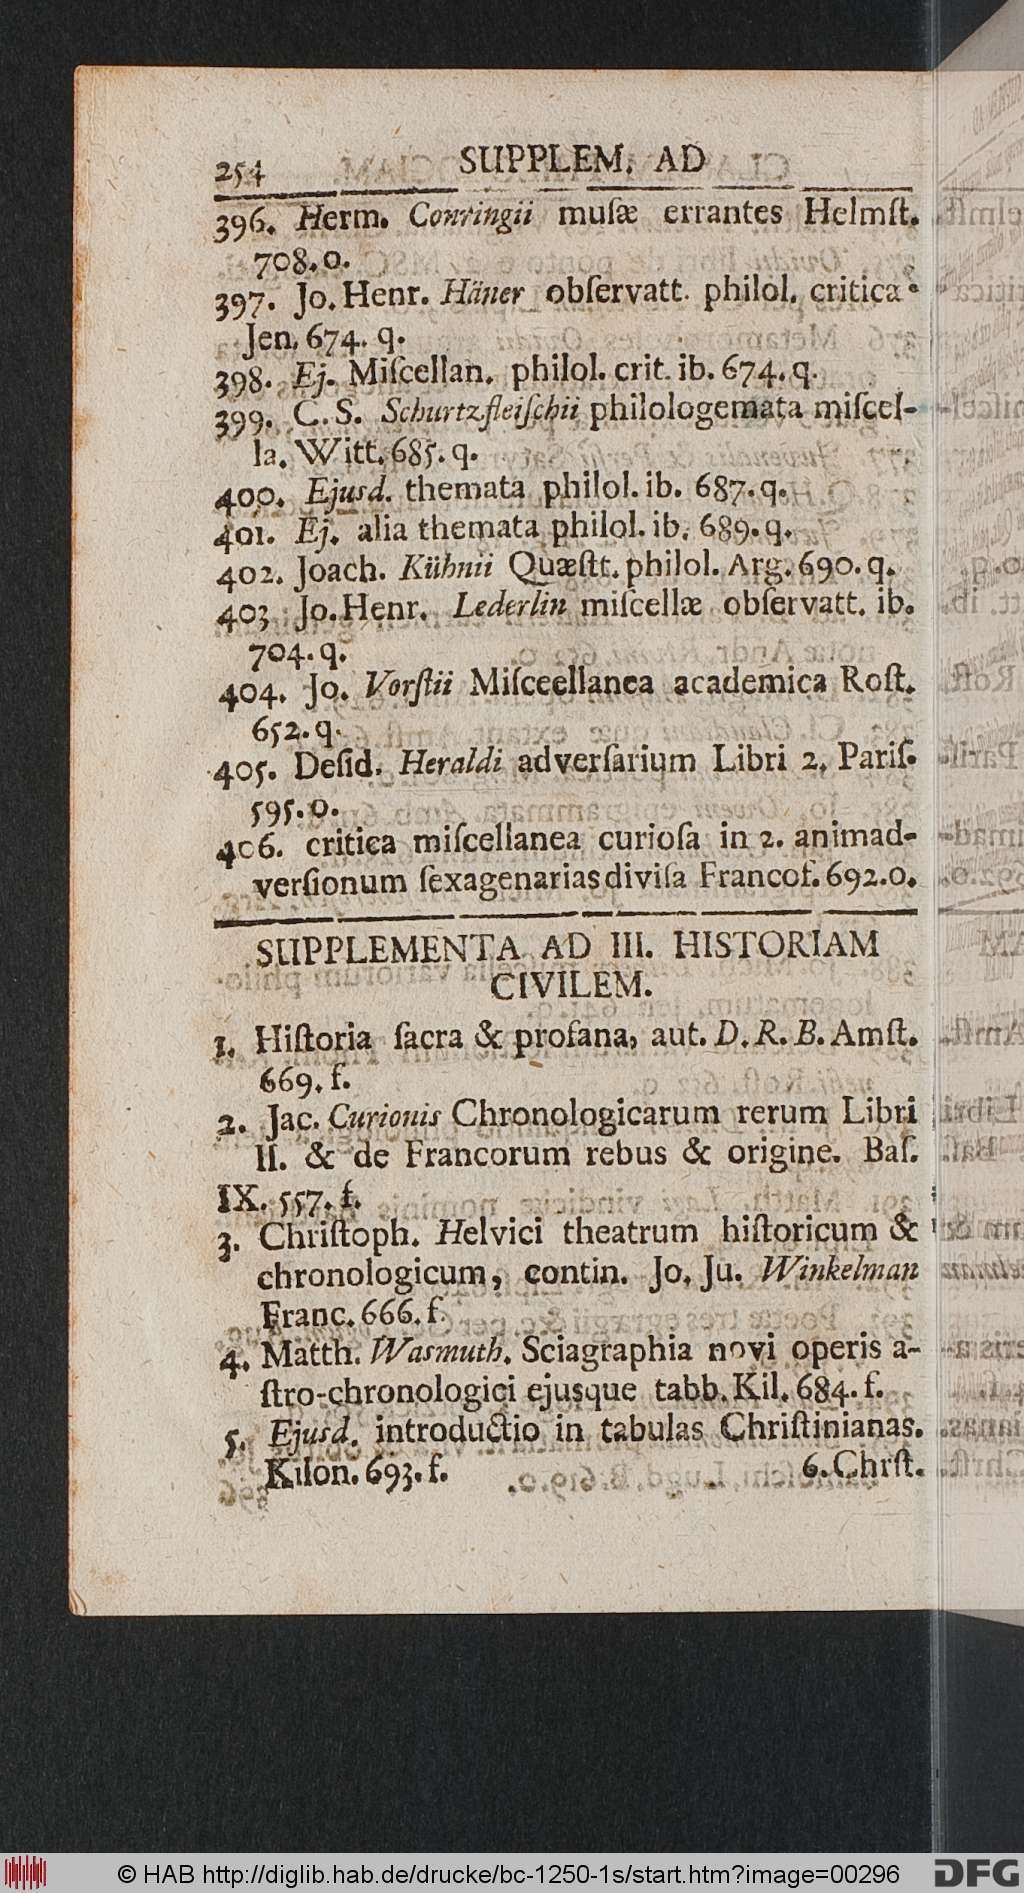 254 SUPPLEM. AD
396. Herm. Conringii musæ errantes Helmſt.
708.o.
397. Jo. Henr. Häner obſervatt. philol. critica
Jen. 674. q.
398. Ej. Miſcellan. philol. crit. ib. 674. q.
399. C. S. Schurtzfleiſchii philologemata miſcel-
la. Witt. 685. q.
400. Ejusd. themata philol. ib. 687. q.
401. Ej. alia themata philol. ib. 689. q.
402. Joach. Kühnii Quæſtt. philol. Arg. 690. q.
403 Jo. Henr. Lederlin miſcellæ obſervatt. ib.
704. q.
404. Jo. Vorſtii Miſceellanea academica Roſt.
652. q.
405. Deſid. Heraldi adverſarium Libri 2. Pariſ.
595.o.
406. critica miſcellanea curioſa in 2. animad-
verſionum ſexagenarias diviſa Francof. 692.o.
SUPPLEMENTA AD III. HISTORIAM
CIVILEM.
1. Hiſtoria ſacra & profana, aut. D. R. B. Amſt.
669. f.
2. Jac. Curionis Chronologicarum rerum Libri
II. & de Francorum rebus & origine. Baſ.
IX. 557. f.
3. Chriſtoph. Helvici theatrum hiſtoricum &
chronologicum, contin. Jo. Ju. Winkelman
Franc. 666. f.
4. Matth. Wasmuth. Sciagraphia novi operis a-
ſtro-chronologici ejusque tabb. Kil. 684. f.
5. Ejusd. introductio in tabulas Chriſtinianas.
Kilon. 693. f. 6. Chrſt.
© HAB http://diglib.hab.de/drucke/bc-1250-1s/start.htm?image=00296 DFG